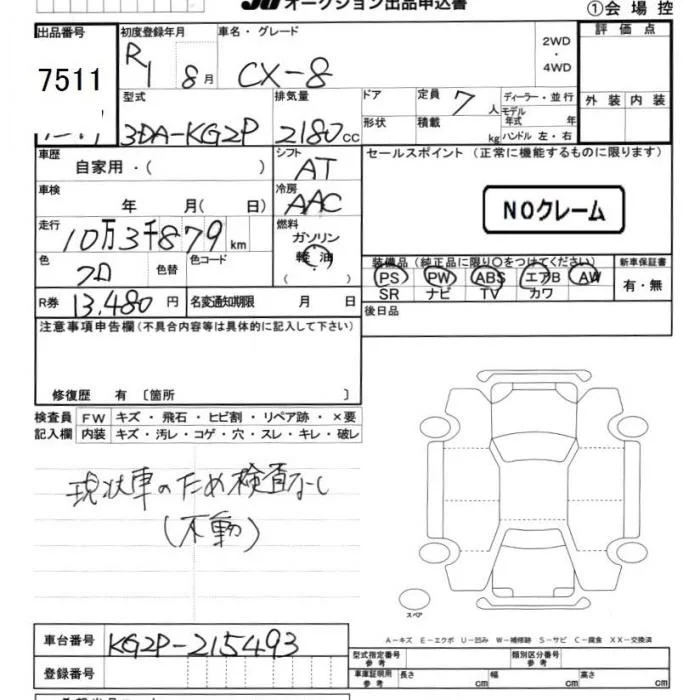 オークション出品申込書
①会場控
出品番号 初度登録年月 車名・グレード 2WD・4WD 評価点
7511 R1 8月 CX-8
型式 排気量 ドア 定員 7人 ディーラー・並行 外装 内装
3DA-KG2P 2180cc 形状 積載 kg モデル年式 年 ハンドル 左・右
車歴 自家用・( ) シフト AT セールスポイント (正常に機能するものに限ります)
車検 年 月( 日) 冷房 AAC
NOクレーム
走行 10万3千879km 燃料 ガソリン 軽油 ( )
装備品(純正品に限り〇をつけてください) 新車保証書
色 クロ 色替 色コード PS PW ABS エアB AW 有・無
SR ナビ TV カワ
R券 13,480円 名変通知期限 月 日 後日品
注意事項申告欄(不具合内容等は具体的に記入して下さい)
修復歴 有 〔箇所 〕
検査員 FW キズ・飛石・ヒビ割・リペア跡・×要
記入欄 内装 キズ・汚レ・コゲ・穴・スレ・キレ・破レ
現状車のため検査なし
(不動)
スペア
A-キズ E-エクボ U-凹み W-補修跡 S-サビ C-腐食 XX-交換済
車台番号 KG2P-215493
型式指定番号 参考 類別区分番号 参考
登録番号 車庫証明用 参考 長さ cm 幅 cm 高さ cm